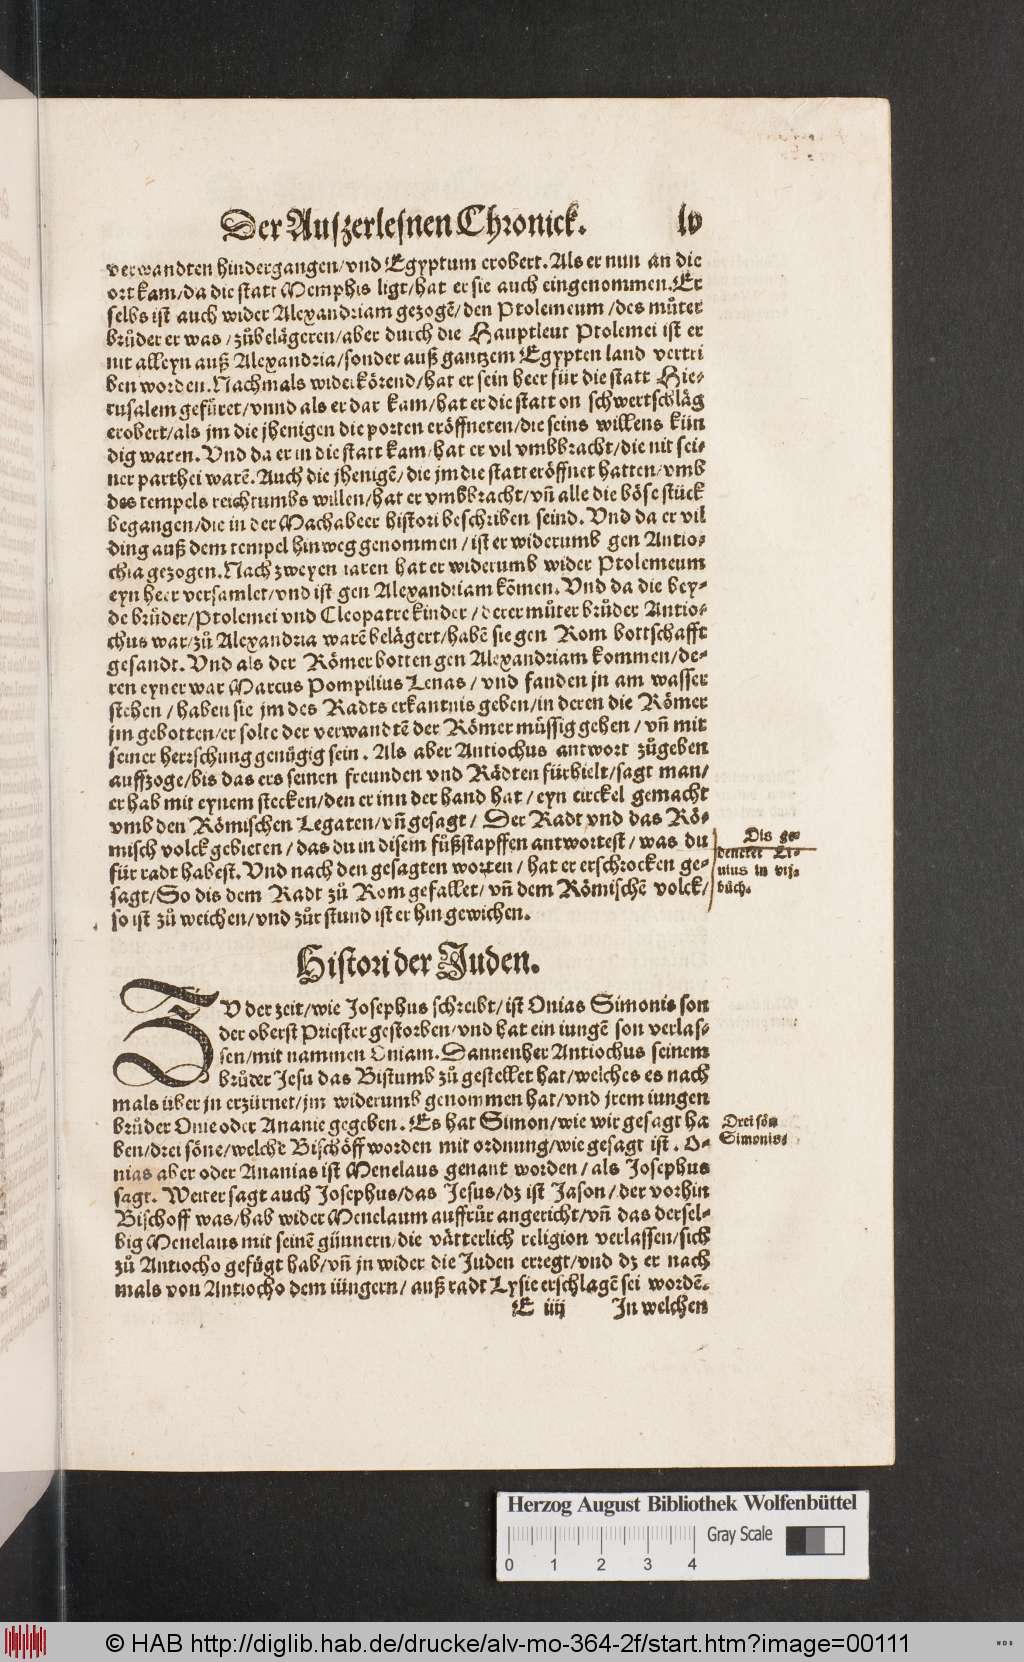 Der Auszerlesnen Chronick. lv
verwandten hindergangen/vnd Egyptum erobert. Als er nun an die
ort kam/da die statt Memphis ligt/hat er sie auch eingenommen. Er
selbs ist auch wider Alexandriam gezogē/den Ptolemeum/des můter
brůder er was/zůbelägeren/aber durch die Hauptleut Ptolemei ist er
nit alleyn auß Alexandria/sonder auß gantzem Egypten land vertri
ben worden. Nachmals widerkörend/hat er sein heer für die statt Hie-
rusalem gefüret/vnnd als er dar kam/hat er die statt on schwertschläg
erobert/als jm die jhenigen die porten eröffneten/die seins willens kün
dig waren. Vnd da er in die statt kam/hat er vil vmbbracht/die nit sei-
ner parthei warē. Auch die jhenigē/die jm die statt eröffnet hatten/vmb
des tempels reichtumbs willen/hat er vmbbracht/vñ alle die böse stück
begangen/die in der Machabeer histori beschriben seind. Vnd da er vil
ding auß dem tempel hinweg genommen/ist er widerumb gen Antio-
chia gezogen. Nach zweyen iaren hat er widerumb wider Ptolemeum
eyn heer versamlet/vnd ist gen Alexandriam kōmen. Vnd da die bey-
de brůder/Ptolemei vnd Cleopatre kinder/derer můter brůder Antio-
chus war/zů Alexandria warē belägert/habē sie gen Rom bottschafft
gesandt. Vnd als der Römer botten gen Alexandriam kommen/de-
ren eyner war Marcus Pompilius Lenas/vnd fanden jn am wasser
stehen/haben sie jm des Radts erkantnis geben/in deren die Römer
jm gebotten/er solte der verwandtē der Römer müssig gehen/vñ mit
seiner herrschung genügig sein. Als aber Antiochus antwort zůgeben
auffzoge/bis das ers seinen freunden vnd Rädten fürhielt/sagt man/
er hab mit eynem stecken/den er inn der hand hat/eyn circkel gemacht
vmb den Römischen Legaten/vñ gesagt/Der Radt vnd das Rö-
misch volck gebieten/das du in disem fůßstapffen antwortest/was du
für radt habest. Vnd nach den gesagten worten/hat er erschrocken ge-
sagt/So dis dem Radt zů Rom gefallet/vñ dem Römischē volck/
so ist zů weichen/vnd zůr stund ist er hin gewichen.
Dis ge-
dencket Li-
uius in vij.
bůch.
Histori der Juden.
ZV der zeit/wie Josephus schreibt/ist Onias Simonis son
der oberst Priester gestorben/vnd hat ein iungē son verlas-
sen/mit nammen Oniam. Dannenher Antiochus seinem
brůder Jesu das Bistumb zů gestellet hat/welches es nach
mals über jn erzürnet/jm widerumb genommen hat/vnd jrem iungen
brůder Onie oder Ananie gegeben. Es hat Simon/wie wir gesagt ha
ben/drei söne/welche Bischöff worden mit ordnung/wie gesagt ist. O-
nias aber oder Ananias ist Menelaus genant worden/als Josephus
sagt. Weiter sagt auch Josephus/das Jesus/dz ist Jason/der vorhin
Bischoff was/hab wider Menelaum auffrůr angericht/vñ das dersel-
big Menelaus mit seinē günnern/die vätterlich religion verlassen/sich
zů Antiocho gefügt hab/vñ jn wider die Juden erregt/vnd dz er nach
mals von Antiocho dem iüngern/auß radt Lysie erschlagē sei wordē.
Drei sön
Simonis.
E iiij In welchen
Herzog August Bibliothek Wolfenbüttel
0 1 2 3 4 Gray Scale
© HAB http://diglib.hab.de/drucke/alv-mo-364-2f/start.htm?image=00111